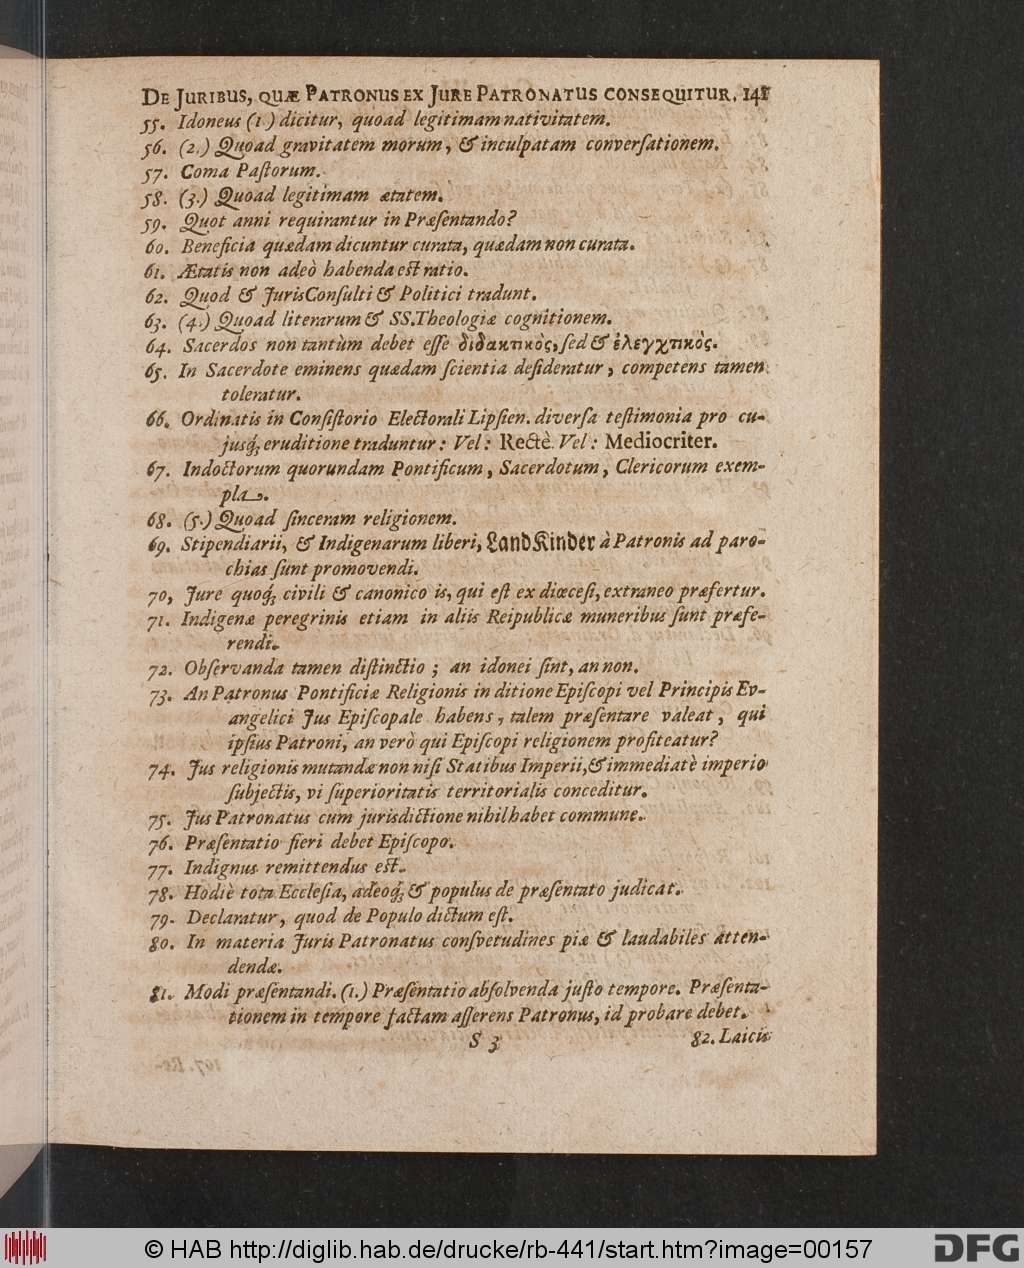 DE JURIBUS, QUÆ PATRONUS EX JURE PATRONATUS CONSEQUITUR. 141
55. Idoneus (1.) dicitur, quoad legitimam nativitatem.
56. (2.) Quoad gravitatem morum, & inculpatam converſationem.
57. Coma Paſtorum.
58. (3.) Quoad legitimam ætatem.
59. Quot anni requirantur in Præſentando?
60. Beneficia quædam dicuntur curata, quædam non curata.
61. Ætatis non adeò habenda eſt ratio.
62. Quod & JurisConſulti & Politici tradunt.
63. (4.) Quoad literarum & SS.Theologiæ cognitionem.
64. Sacerdos non tantùm debet eſſe διδακτικὸς, ſed & ἐλεγχτικὸς.
65. In Sacerdote eminens quædam ſcientia deſideratur, competens tamen
toleratur.
66. Ordinatis in Conſiſtorio Electorali Lipſien. diverſa teſtimonia pro cu-
jusq́; eruditione traduntur: Vel: Rectè. Vel: Mediocriter.
67. Indoctorum quorundam Pontificum, Sacerdotum, Clericorum exem-
pla.
68. (5.) Quoad ſinceram religionem.
69. Stipendiarii, & Indigenarum liberi, LandKinder à Patronis ad paro-
chias ſunt promovendi.
70, Jure quoq́; civili & canonico is, qui eſt ex diœceſi, extraneo præfertur.
71. Indigenæ peregrinis etiam in aliis Reipublicæ muneribus ſunt præfe-
rendi.
72. Obſervanda tamen diſtinctio; an idonei ſint, an non.
73. An Patronus Pontificiæ Religionis in ditione Epiſcopi vel Principis Ev-
angelici Jus Epiſcopale habens, talem præſentare valeat, qui
ipſius Patroni, an verò qui Epiſcopi religionem profiteatur?
74. Jus religionis mutandæ non niſi Statibus Imperii, & immediatè imperio
ſubjectis, vi ſuperioritatis territorialis conceditur.
75. Jus Patronatus cum jurisdictione nihil habet commune.
76. Præſentatio fieri debet Epiſcopo.
77. Indignus remittendus eſt.
78. Hodiè tota Eccleſia, adeoq́; & populus de præſentato judicat.
79. Declaratur, quod de Populo dictum eſt.
80. In materia Juris Patronatus conſvetudines piæ & laudabiles atten-
dendæ.
81. Modi præſentandi. (1.) Præſentatio abſolvenda juſto tempore. Præſenta-
tionem in tempore factam aſſerens Patronus, id probare debet.
S 3
82. Laicis
© HAB http://diglib.hab.de/drucke/rb-441/start.htm?image=00157
DFG